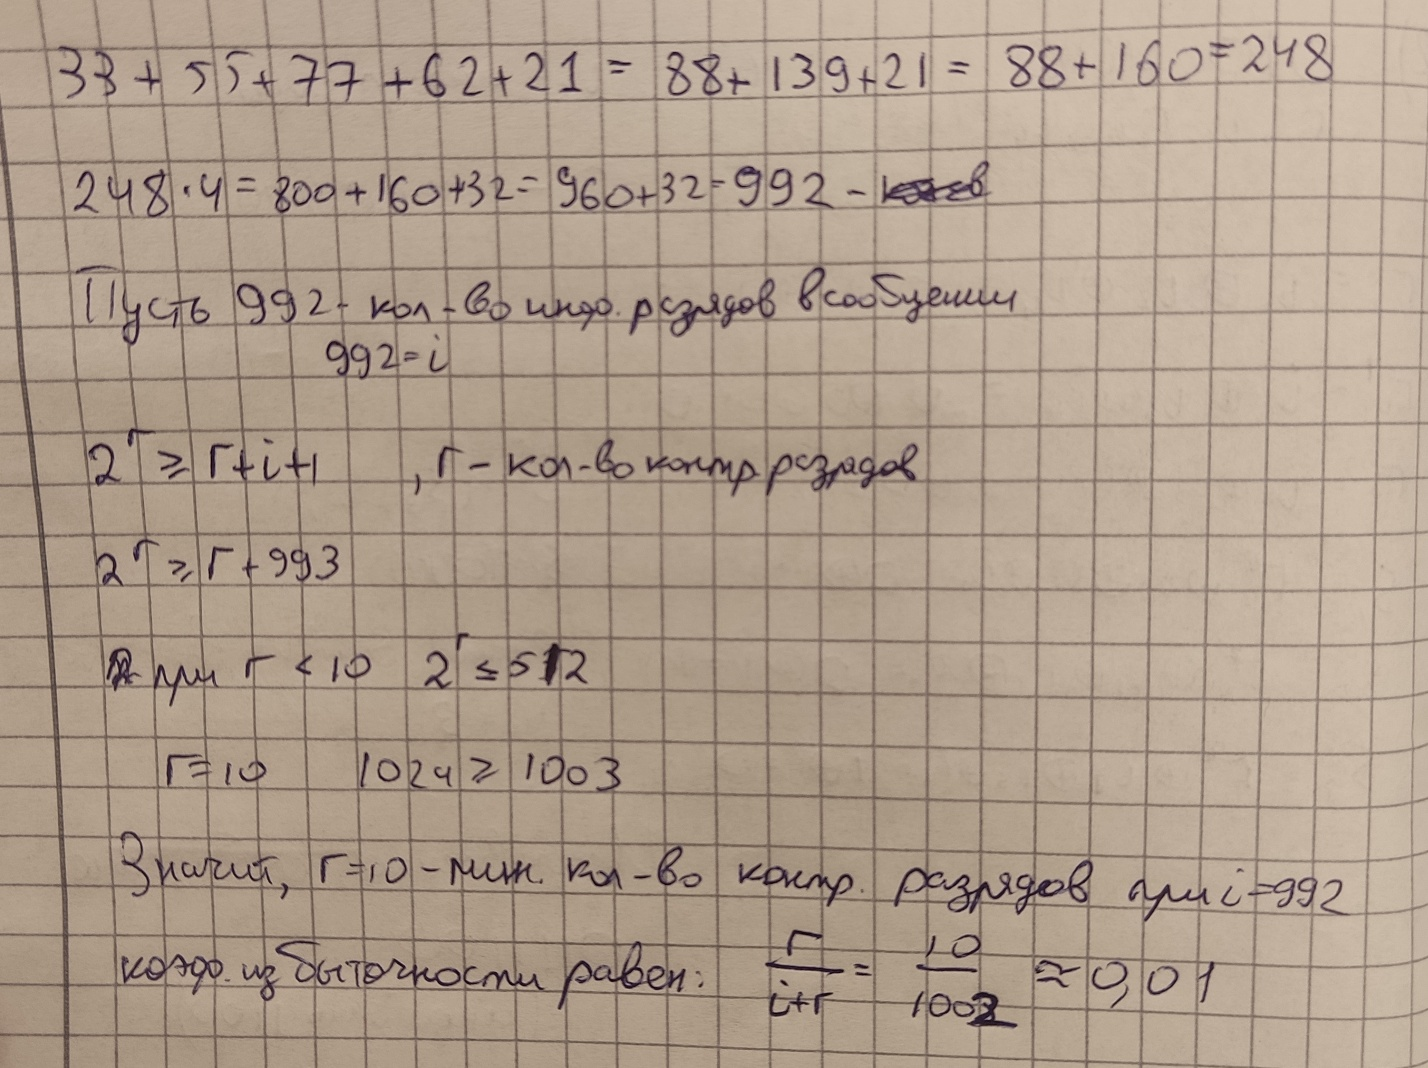 33 + 55 + 77 + 62 + 21 = 88 + 139 + 21 = 88 + 160 = 248
248 · 4 = 800 + 160 + 32 = 960 + 32 = 992 -
Пусть 992 - кол-во инфо. разрядов в сообщении
992 = i
2^r ≥ r + i + 1 , r - кол-во контр. разрядов
2^r ≥ r + 993
при r < 10 2^r ≤ 512
r = 10 1024 ≥ 1003
Значит, r = 10 - мин. кол-во контр. разрядов при i = 992
коэф. избыточности равен: r/(i+r) = 10/1002 ≈ 0,01